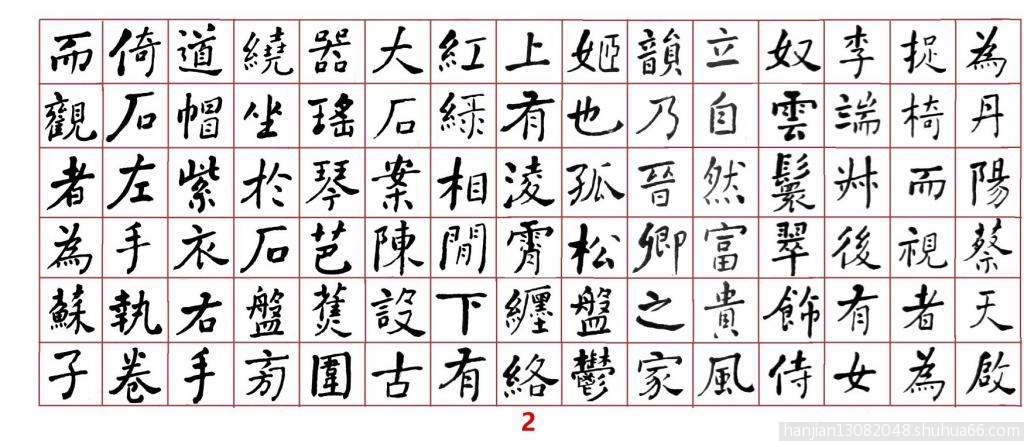 為丹陽蔡天啟
捉椅而視者為
李端叔後有女
奴雲鬟翠飾侍
立自然富貴風
韻乃晉卿之家
姬也孤松盤鬱
上有淩霄纏絡
紅綠相間下有
大石案陳設古
器瑤琴芭蕉圍
繞坐於石盤旁
道帽紫衣右手
倚石左手執卷
而觀者為蘇子
2
hanjian13082048.shuhua66.com